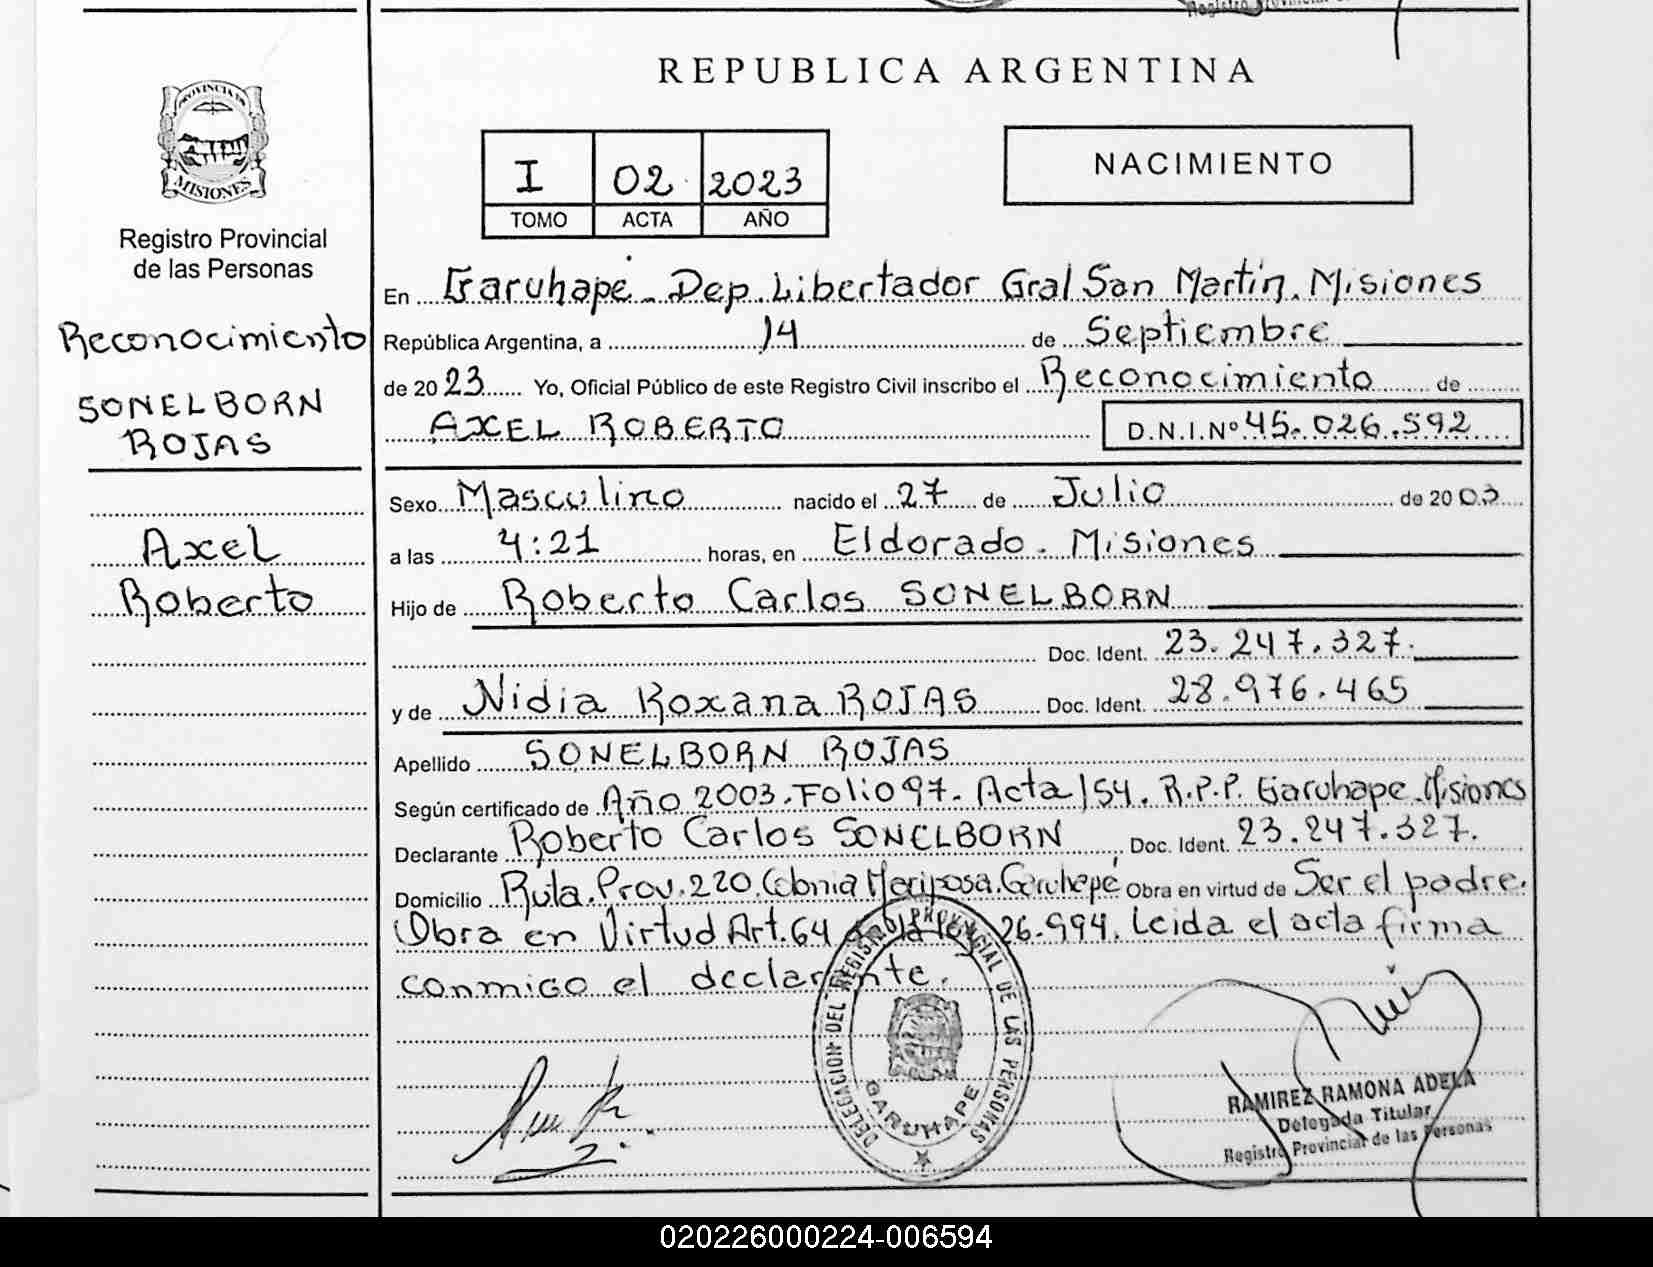 REPUBLICA ARGENTINA
PROVINCIA DE
MISIONES
Registro Provincial
de las Personas
Reconocimiento
SONELBORN
ROJAS
Axel
Roberto
I 02 2023
TOMO ACTA AÑO
NACIMIENTO
En Garuhapé - Dep. Libertador Gral San Martín. Misiones
República Argentina, a 14 de Septiembre
de 2023 Yo, Oficial Público de este Registro Civil inscribo el Reconocimiento de
AXEL ROBERTO D.N.I.Nº 45.026.592
Sexo Masculino nacido el 27 de Julio de 2003
a las 4:21 horas, en Eldorado. Misiones
Hijo de Roberto Carlos SONELBORN
Doc. Ident. 23.247.327.
y de Nidia Roxana ROJAS Doc. Ident. 28.976.465
Apellido SONELBORN ROJAS
Según certificado de Año 2003. Folio 97. Acta 154. R.P.P. Garuhape. Misiones
Declarante Roberto Carlos SONELBORN Doc. Ident. 23.247.327.
Domicilio Ruta. Prov. 220. Colonia Mariposa. Garuhapé Obra en virtud de Ser el padre.
Obra en Virtud Art. 64 de la ley 26.994. Leida el acta firma
conmigo el declarante.
DELEGACION DEL REGISTRO PROVINCIAL DE LAS PERSONAS
GARUHAPE
RAMIREZ RAMONA ADELA
Delegada Titular
Registro Provincial de las Personas
020226000224-006594